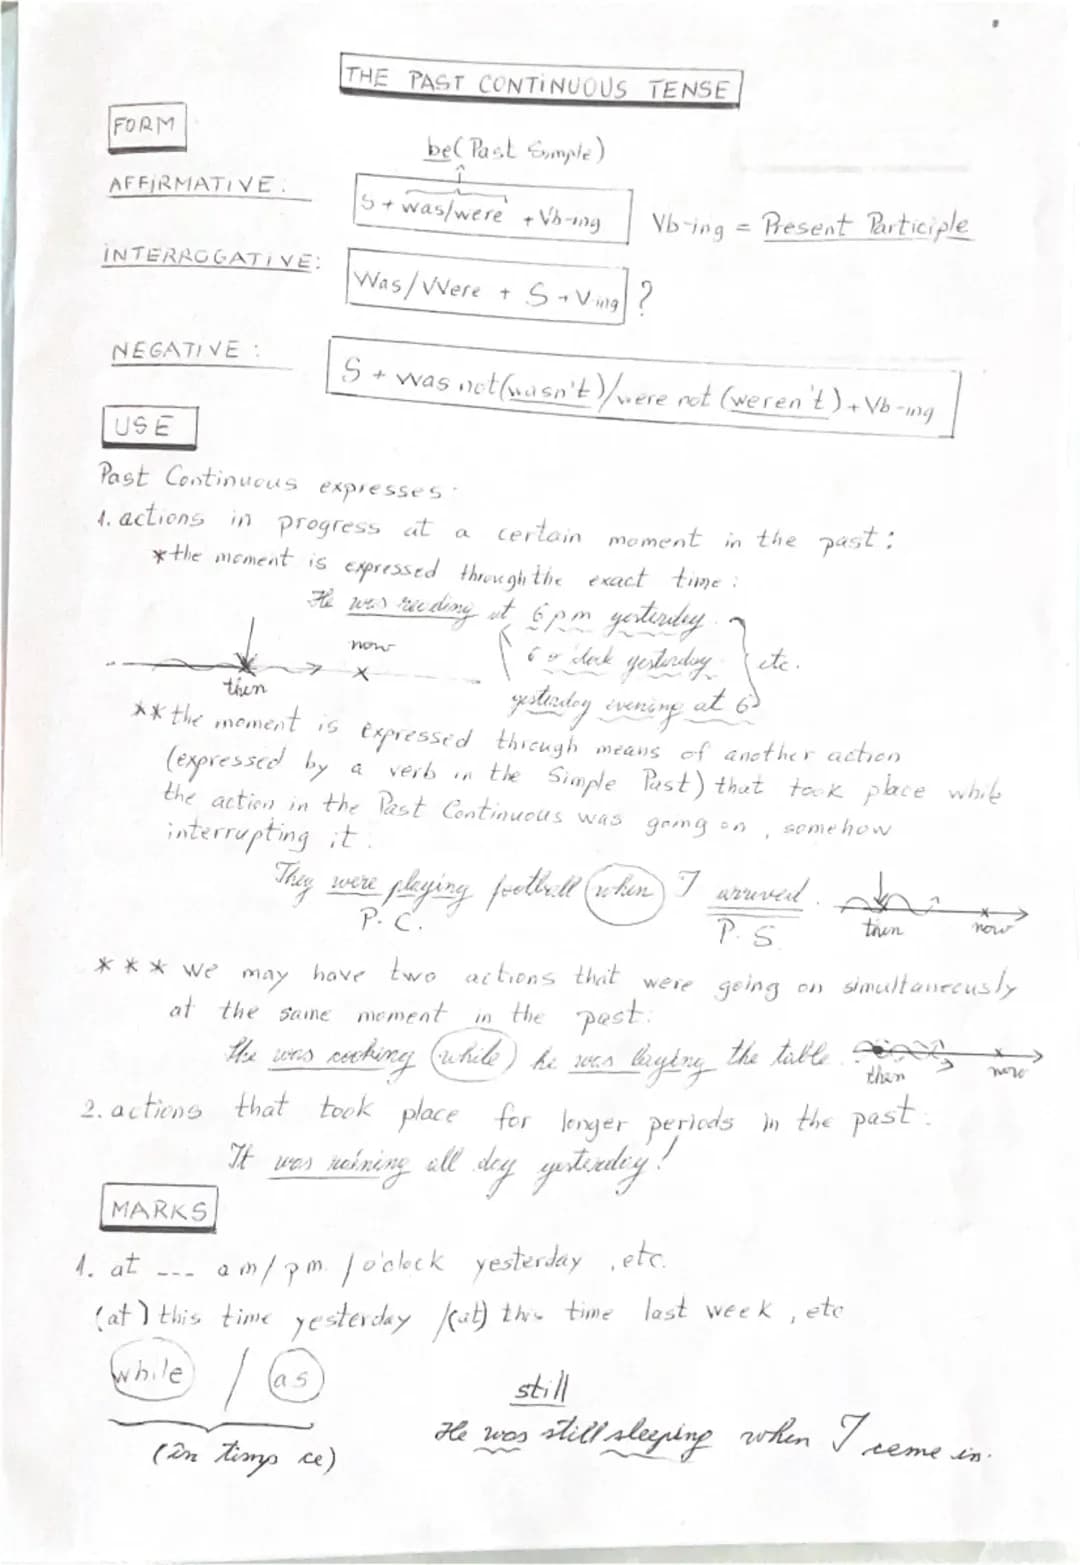 THE PAST CONTINUOUS TENSE
FORM
be (Past Simple)
AFFIRMATIVE:
S + was/were + Vb-ing
Vb-ing = Present Participle
INTERROGATIVE:
Was/Were + S + Ving ?
NEGATIVE:
S + was not (wasn't)/were not (weren't) + Vb-ing
USE
Past Continuous expresses:
1. actions in progress at a certain moment in the past:
* the moment is expressed through the exact time:
He was reading at 6 pm yesterday.
6 o'clock yesterday
etc.
yesterday evening at 6
now
then
** the moment is expressed through means of another action
(expressed by a verb in the Simple Past) that took place while
the action in the Past Continuous was going on, somehow
interrupting it.
They were playing football when I arrived.
P.C.
P.S.
then
now
*** we may have two actions that were going on simultaneously
at the same moment in the past:
She was cooking while he was laying the table.
then
now
2. actions that took place for longer periods in the past:
It was raining all day yesterday!
MARKS
1. at --- am/pm. /o'clock yesterday, etc.
(at) this time yesterday /(at) this time last week, etc
while / as
(în timp ce)
still
He was still sleeping when I came in.